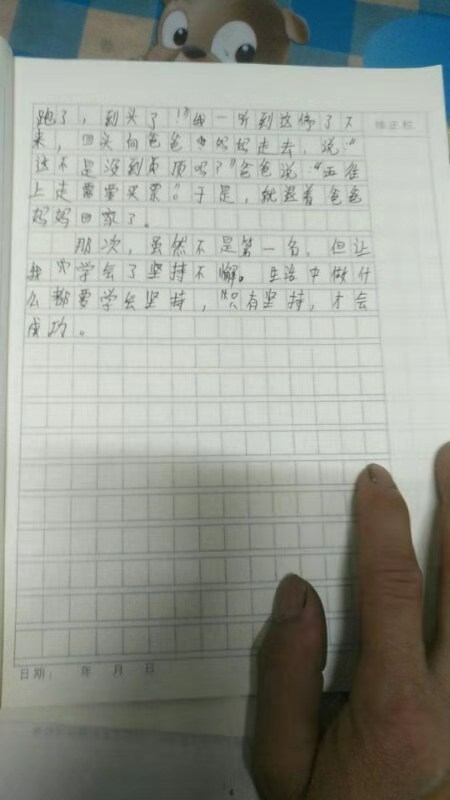 跑了，到头了！”我一听到这停了下
来，回头向爸爸妈妈走去，说“
这不是没到山顶吗？”爸爸说“再往
上走需要买票”于是，就跟着爸爸
妈妈回家了。
那次，虽然不是第一名，但让
我学会了坚持不懈。生活中做什
么都要学会坚持，只有坚持，才会
成功。
修正栏
日期： 年 月 日